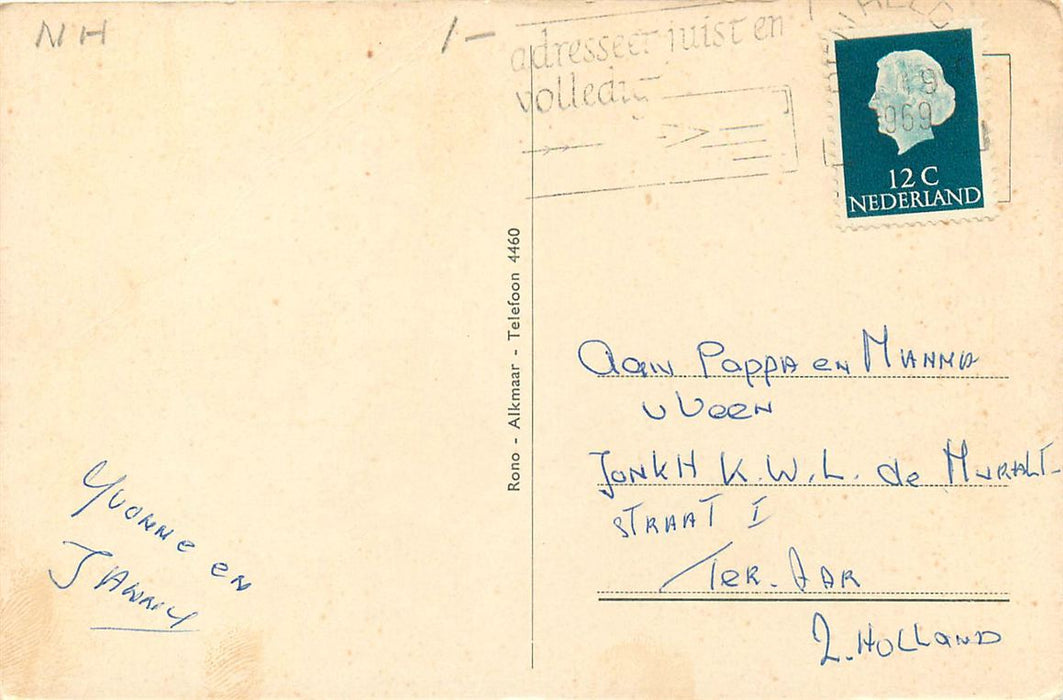 NH
1-
adresseer juist en
volledig
DEN HELD
9
1969
12 C
NEDERLAND
Rono - Alkmaar - Telefoon 4460
Aan Pappa en Mamma
v Veen
JonkH K.W.L. de Muralt-
STRAAT I
Ter-Aar
Z. HOLLAND
Yvonne en